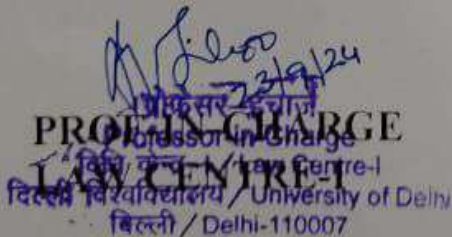 23/9/24
प्रोफेसर-इंचार्ज
PROF-IN-CHARGE
Professor In-Charge
विधि केन्द्र-I / Law Centre-I
LAW CENTRE-I
दिल्ली विश्वविद्यालय / University of Delhi
दिल्ली / Delhi-110007